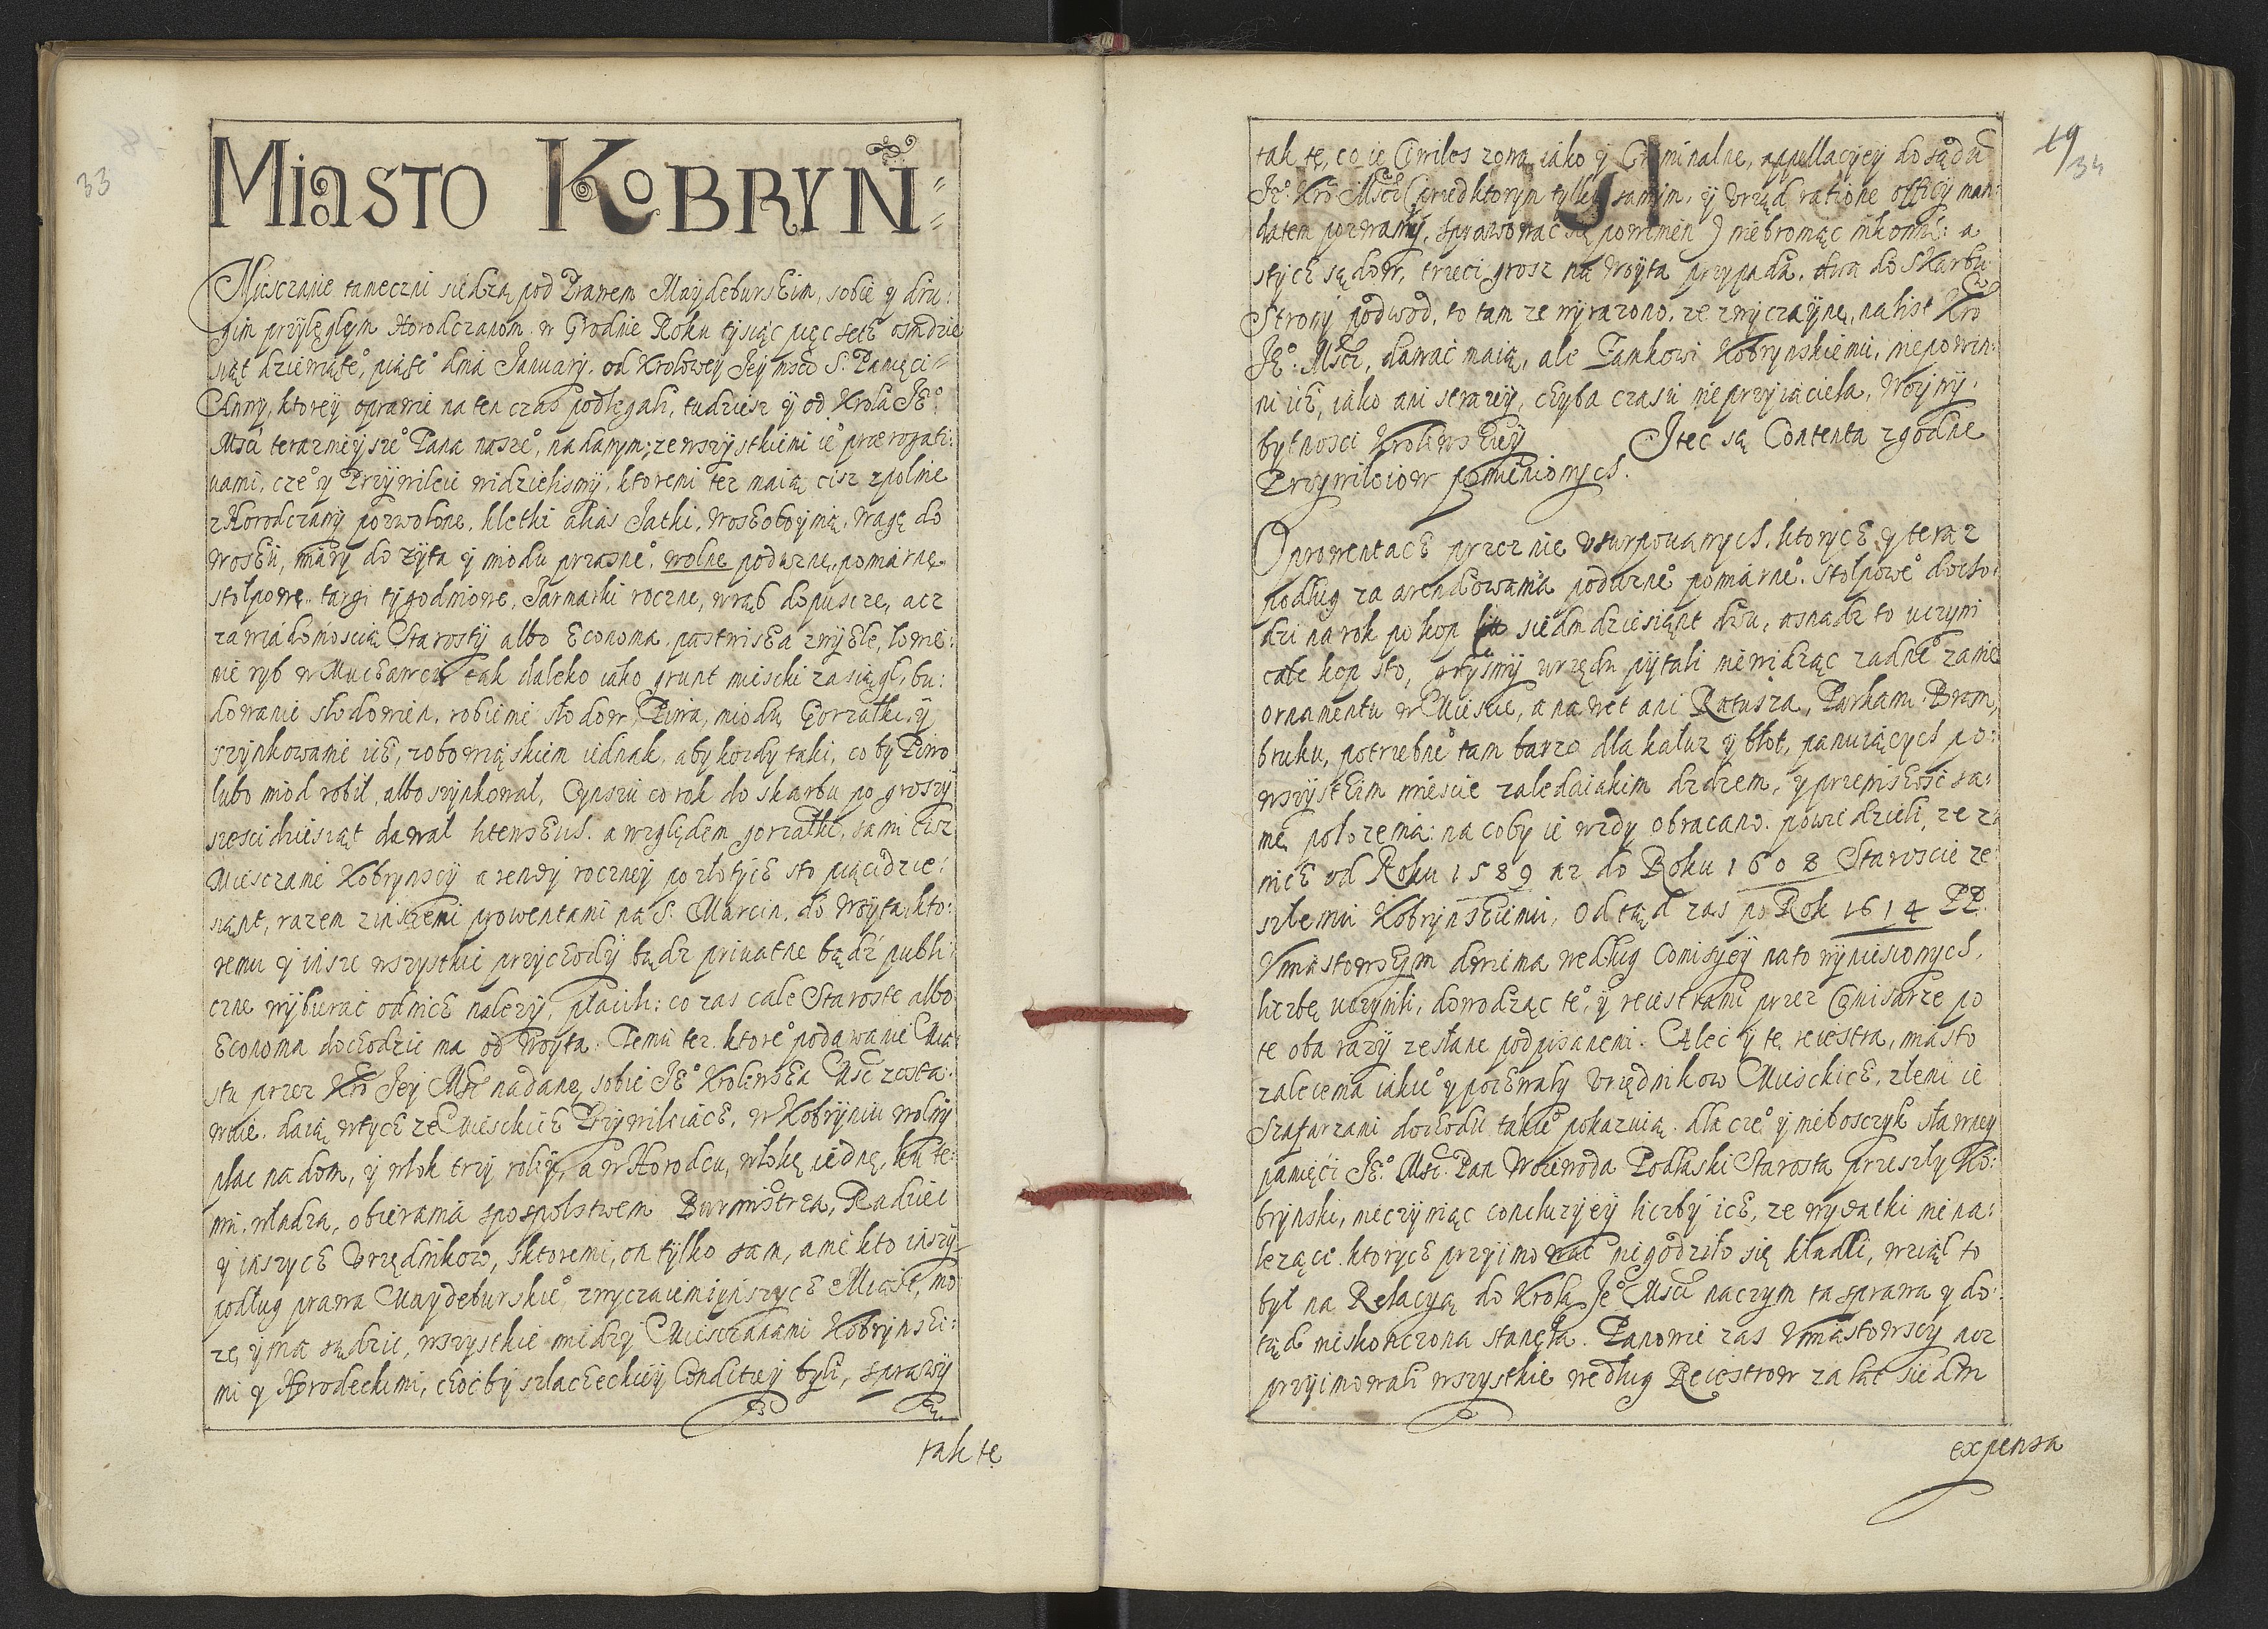 33
Miasto Kobryn
Miesczanie tameczni siedzą pod Prawem Maydeburskim, sobie y dru:
gim przyległym Horodczanom w Grodnie Roku tysiąc pięcseth osmdzie
siąt dziewiąte°, piąte° dnia January, od Krolowey Jey mści S. Pamięci
Anny, ktorey oprawie na ten czas podlegali, tudziesz y od Krola JE°
Mści terazmieysze° Pana nasze°, nadanym; ze wszystkiemi ie° prærogati:
uami, cze° y Przywileie widzielismy, ktoremi tez maią cisz zpolnie
z Horodczany pozwolone, kletki alias Jatki, Woskoboynią, Wagę do
Wosku, miary do zyta y miodu przasne°, wolne poduzne, pomiarne
stołpowe targi tygodniowe, Jarmarki roczne, wrąb do puscze, acz
za wiadomoscią Starosty albo Economa, pastwiska zwykle, lowie:
nie ryb w Muchawcu tak daleko iako grunt mieiski zasiągł, bu:
dowanie słodowien, robienie słodow, Piwa, miodu Gorzałki, y
szynkowanie ich, z obowiąskiem iednak, aby kozdy taki, co by Piwo
lubo miod robił, albo szynkował, Czynszu co rok do skarbu po groszy
szescidziesiąt dawał litewskich. a względem gorzałki, sami cisz
Miesczanie Kobrynscy arendy roczney po złotych sto pięcidzie:
siąnt, razem z inszemi prowentami na S. Marcin, do Woyta, kto:
remu y insze wszystkie przychody bądz priuatne bądź publi:
czne wybierać od nich nalezy, płacili: co zas cale Staroste albo
Economa dochodzic ma od Woyta. Temu tez ktore° podawanie Mia:
stu przez Kro Jey Mść nadane, sobie JE° Krolewska Mść zosta:
wuie. daią w tych ze Mieiskich Przywileiach, w Kobryniu wolny
plac na dom, y włok trzy roley, a w Horodcu, włokę iednę, ku te:
mu. władza, obierania spospolstwem Burmistrza, Radziec
y inszych Urzędnikow, sktoremi, on tylko sam, a nie kto inszy
podług prawa Maydeburskie° zwyczaiem inszych Miast, mo
ze, y ma sądzic, wszystkie miedzy Miesczanami Kobrynski:
mi y Horodeckimi, choćby szlacheckiey Conditiey byli, sprawy
tak te
19/34
tak te, co ie Ciuiles zową iako y Criminalne, appellacyey do sądu
JE° Kro Mści (przed ktorym tylko samym, y Urząd ratione officij man:
datem pozwany, sprawować się powinien) nie broniąc nikomu: a
stych sądow, trzeci grosz na Woyta przypada, dwa do Skarbu
Strony podwod, to tam ze wyrazono, ze zwyczayne, na list Kro
JE° Mści, dawać maią, ale Zamkowi Kobrynskiemu, niepowin:
ni ich, iako ani strazey, chyba czasu nieprzyiaciela, Woyny,
bytnosci Krolewskiey Itec są Contenta zgodne
Przywileiow pomienionych.
O prowentach przez nie usurpouanych, ktorych y teraz
podług zaarendowania poduzne° pomiarne°, stołpowe° docho:
dzi na rok po kop siedmdziesiąnt dwu, a snadz to uczyni
cale kop sto, gdysmy urzędu pytali niewidząc zadne° zanie
ornamentu w Miescie, a nawet ani Ratusza, Parkanu Bram,
bruku, potrzebne° tam barzo dla kałuz y błot, panuiących po:
wszystkim miescie zaledaiakim dzdzem, y przeniskość sa:
me° połozenia: na coby ie wzdy obracano. powiedzieli, ze z
nich od Roku 1589 az do Roku 1608 Staroscie ze
szłemu Kobrynskiemu, Odtąd zas po Rok 1614 PP.
Umiastowskym dwiema według Comisyey na to wyniesionych,
liczbę uczynili, dowodząc te°, y reiestrami przez Comisarze po
te oba razy zesłane podpisanemi. Aleć y te reiestra, miasto
zalecenia iakie° y pochwały Urzędnikow Mieiskich, złemi ie
szafarzami dochodu takie° pokazuią. dla cze° y nieboszczyk sławney
pamięci JE° Mść Pan Woiewoda Podlaski Starosta przeszły Ko:
brynski, nieczyniąc concluzyey liczby ich, ze wydatki niena:
lezące ktorych przyimować niegodziło się kładli, wziął to
był na Relacyą do Krola Je° Mści naczym ta sprawa y do:
tąd nieskonczona stanęła. Panowie zas Umiastowscy acz
przyimowali wszystkie według Reiestrow za lat siedm
expensa